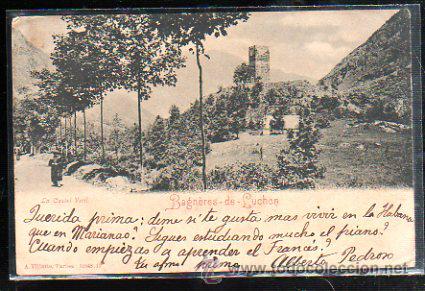 Le Castel Vieil
Bagnères-de-Luchon
Querida prima: dime si te gusta mas vivir en la Habana
que en Marianao? Sigues estudiando mucho el piano?
Cuando empiezas a aprender el Francés?
tu afmo primo Alberto Pedroso
todocoleccion.net